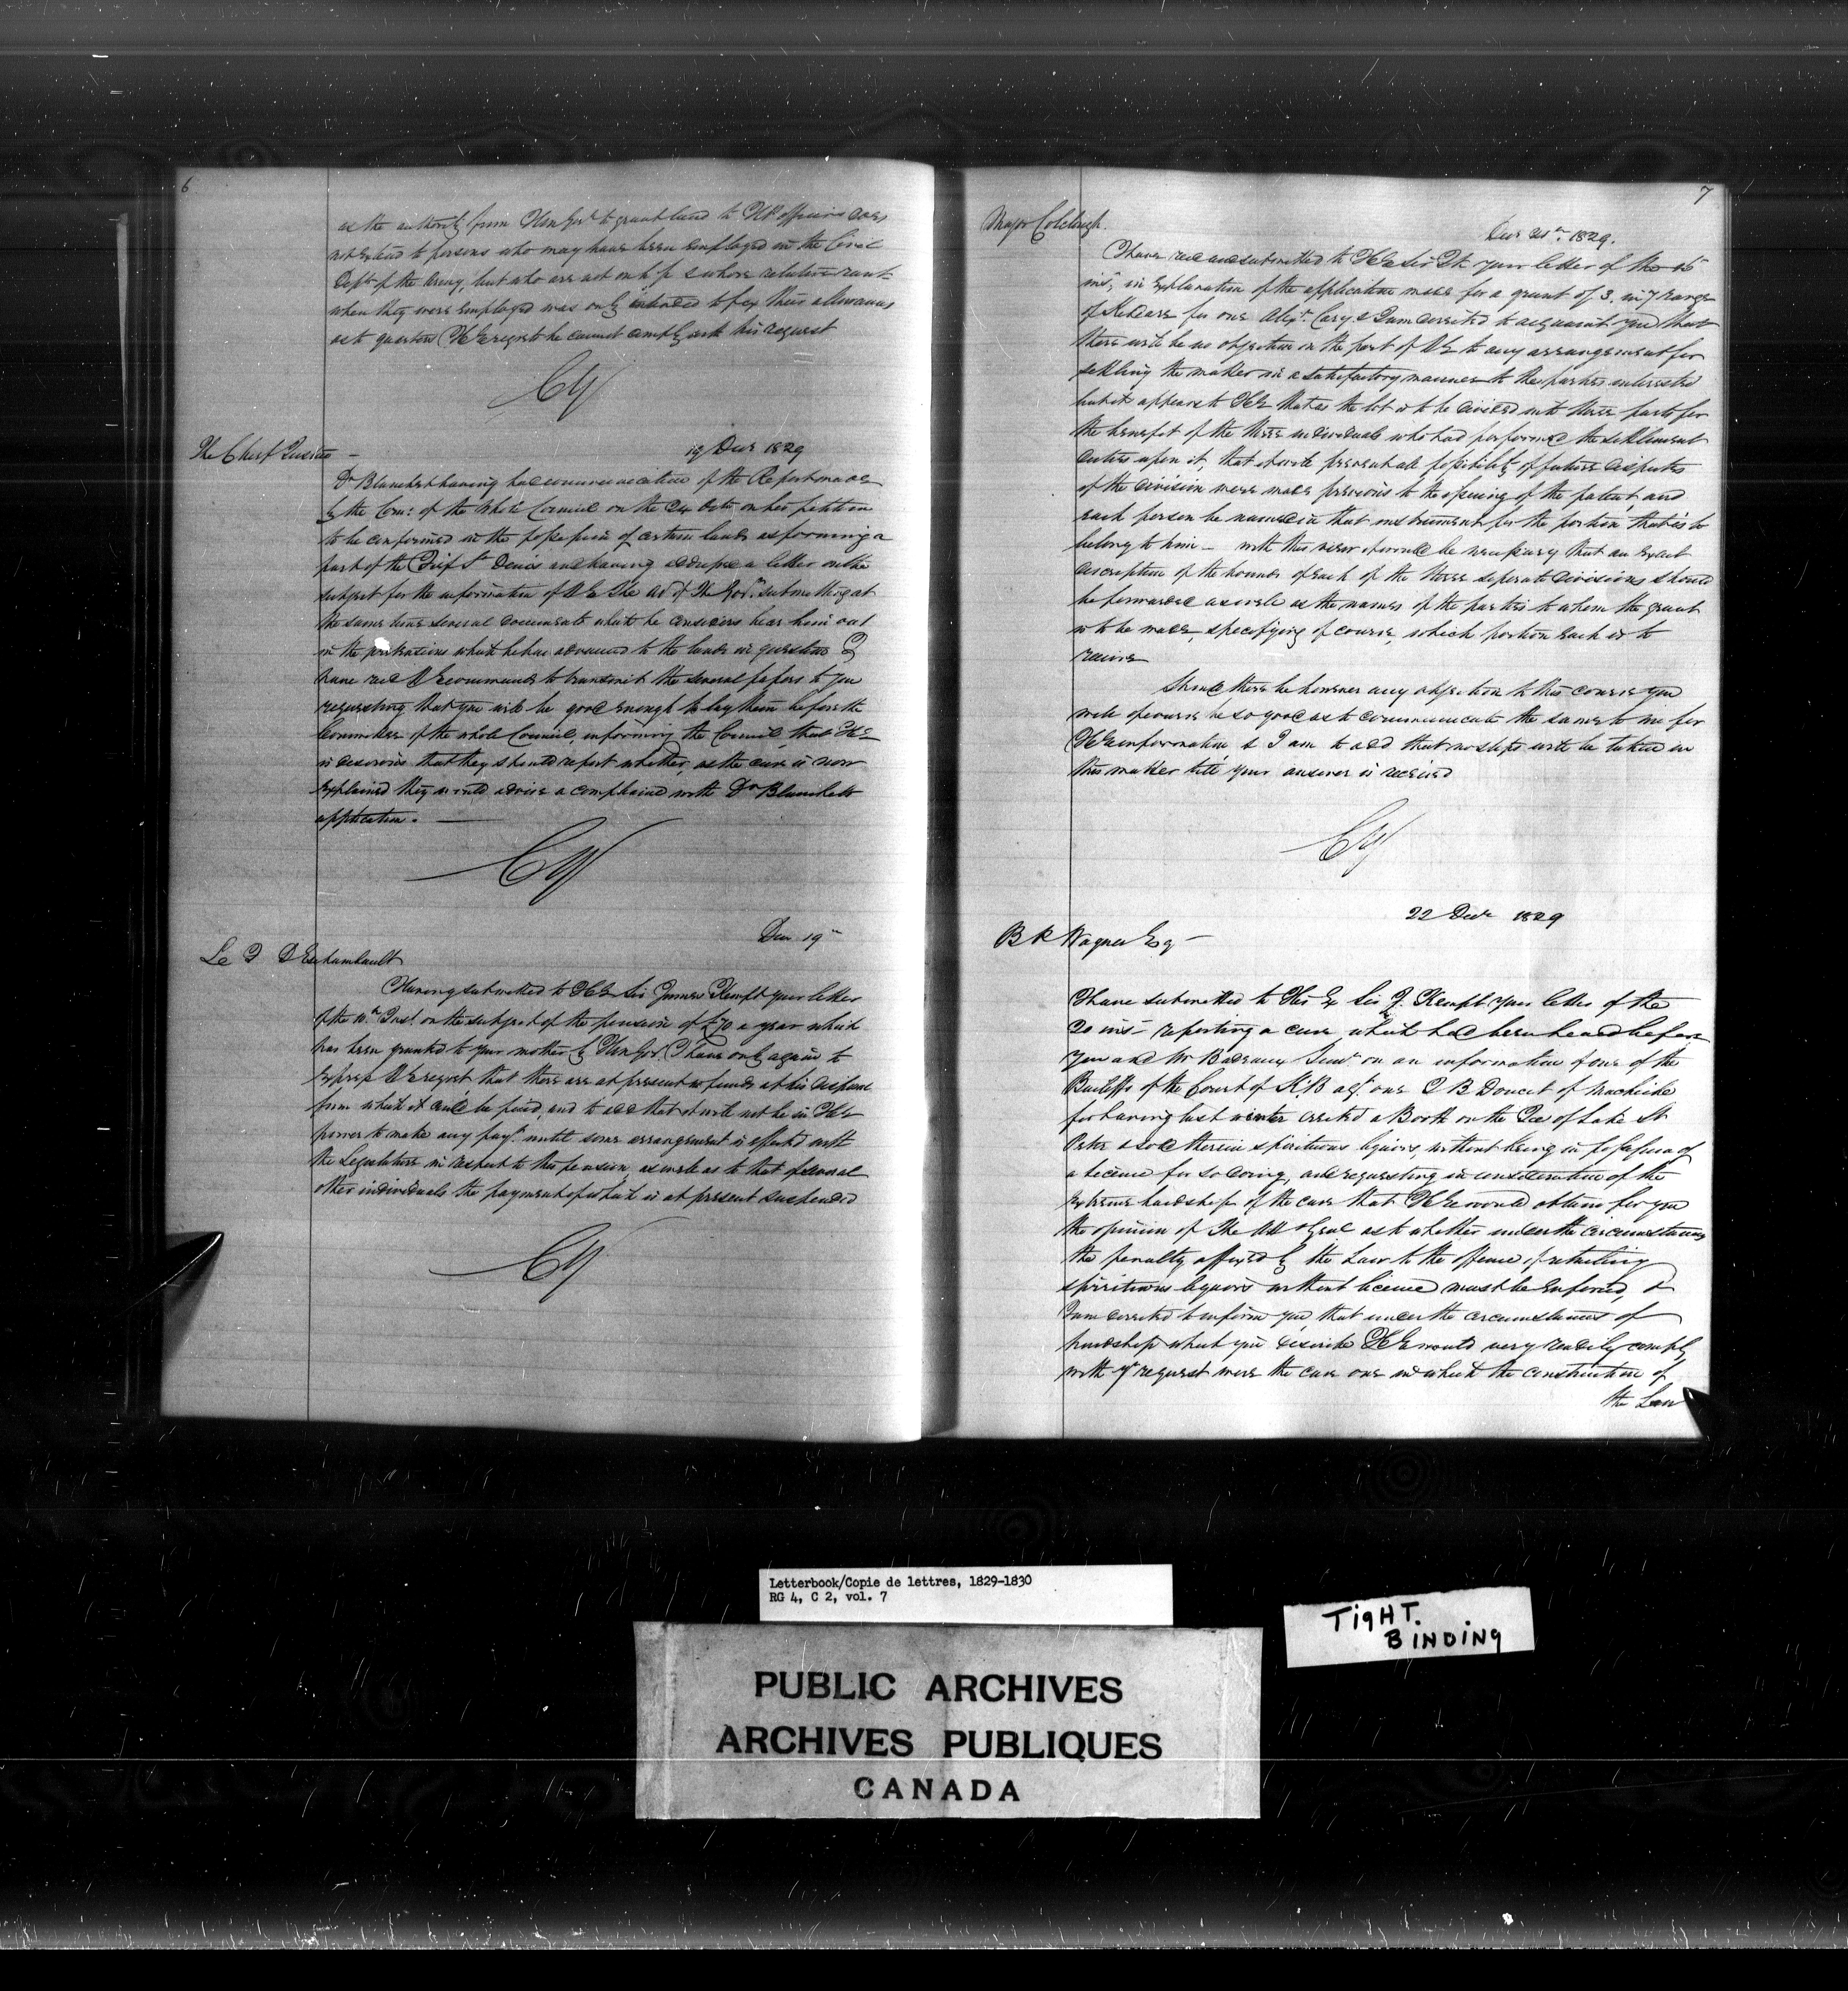 6
as the authority from Home Govt to grant land to HP officers does
not extend to persons who may have been employed in the Civil
Dept of the Army, but who are not on h p & whose relative rank
when they were employed was only intended to fix their allowances
as to quarters HE regrets he cannot comply with his request
CY
The Chief Justice —
19 Decr 1829
Dr Blanchet having had communication of the Report made
by the Com: of the whole Council on the 24 Octr on his petition
to be confirmed in the possession of certain lands as forming a
part of the Fief St Denis and having addressed a letter on the
subject for the information of HE The Adr of The Govt submitting at
the same time several documents which he considers bear him out
in the pretensions which he has advanced to the lands in question I
have recd HE commands to transmit the several papers to you
requesting that you will be good enough to lay them before the
Committee of the whole Council, informing the Council, that HE
is desirous that they should report whether, as the case is now
explained they would advise a compliance with Dr Blanchets
application. —
CY
Decr 19th
Le D Eschambault
Having submitted to HE Sir James Kempt your letter
of the 10th Inst. on the subject of the pension of £70 a year which
has been granted to your mother by Home Govt I have only again to
express HE regret that there are at present no funds at his disposal
from which it could be paid, and to add that it will not be in HE
power to make any payt until some arrangement is effected with
the Legislature in respect to this pension as well as to that of several
other individuals the payment of which is at present suspended
CY
7
Major Colclough.
Decr 21st 1829.
I have recd and submitted to HE Sir Jk your letter of the 15
inst, in explanation of the application made for a grant of 3. in 7 range
of Kildare for one Alexr Cary & I am directed to acquaint you that
there will be no objection on the part of HE to any arrangement for
settling the matter in a satisfactory manner to the parties interested
but it appears to HE that as the lot is to be divided into three parts for
the benefit of the three individuals who had performed the settlement
duties upon it, that it will prevent all possibility of future disputes
if the division were made previous to the issuing of the patent, and
each person be named in that instrument for the portion that is to
belong to him — with this view it would be necessary that an exact
description of the bounds of each of the three seperate divisions should
be forwarded as well as the names of the parties to whom the grant
is to be made, specifying of course, which portion each is to
receive
Should there be however any objection to this course you
will of course be so good as to communicate the same to me for
HE information & I am to add that no steps will be taken in
this matter till your answer is received
CY
22 Decr 1829
B R Wagner Esq —
I have submitted to His Ex Sir J. Kempt your letter of the
20 inst — reporting a case which had been heard before
you and Mr Badeaux Senr on an information of one of the
Bailiffs of the Court of K.B agt one C B Doucet of Machiche
for having last winter erected a Booth on the Ice of Lake St
Peter & sold therein spirituous liquors, without being in possession of
a licence for so doing, and requesting in consideration of the
extreme hardship of the case that HE would obtain for you
the opinion of The Att Genl as to whether under the circumstances
the penalty affixed by the Law to the offence of retailing
spirituous liquors without licence must be enforced, &
I am directed to inform you, that under the circumstances of
hardship which you describe HE would very readily comply
with yr request were the case one in which the construction of
the Law
Letterbook/Copie de lettres, 1829-1830
RG 4, C 2, vol. 7
TIGHT.
BINDING
PUBLIC ARCHIVES
ARCHIVES PUBLIQUES
CANADA